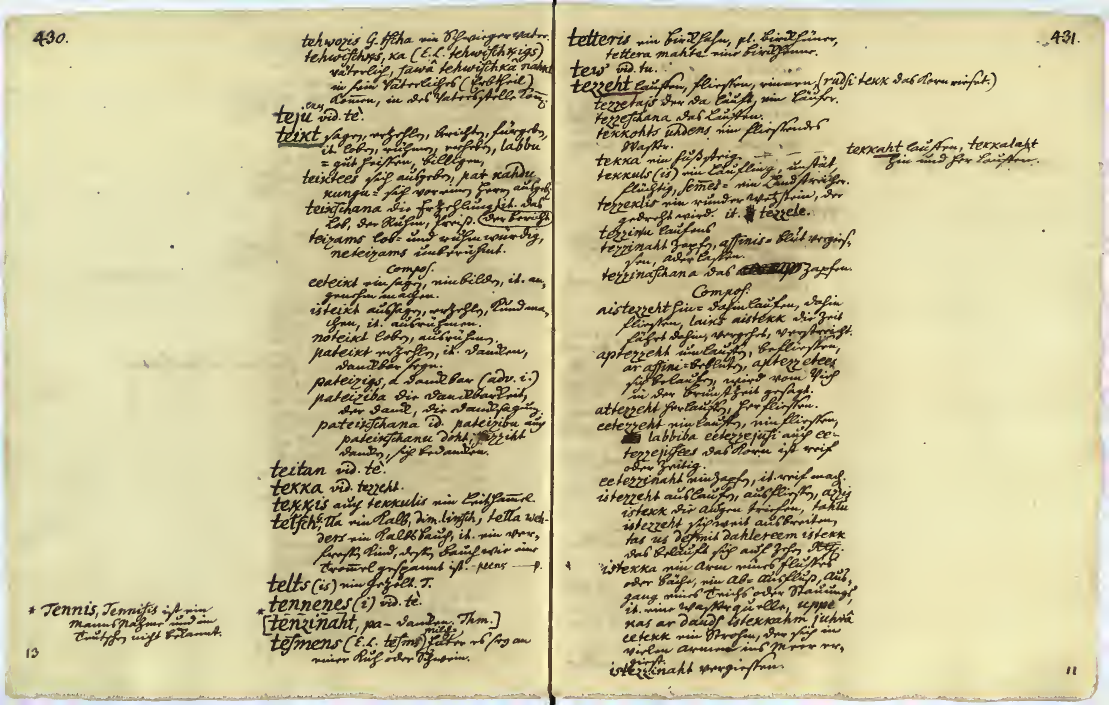 430.
tehwozis G. tscha ein Schwieger Vater.
tehwischkys, ka (E.L. tehwischkigs)
väterlich, sawâ tehwischkâ nahkt
in sein Väterliches (Erbtheil)
kom̄en, in des Vaters stelle kom̄
teju vid. tè.
teikt sagen, erzehlen, berichten, fürgeben,
it. loben, rühmen, erheben, labbu
= gut heissen, billigen,
teiktees sich ausgeben, par kahdu
kungu = sich vor einen Herrn ausgeb.
teikschana die Erzehlung it. das
Lob, der Ruhm, Preiß. der bericht
teizams lob= und rühmwürdig,
neteizams unberühmt.
Compos.
eeteikt einsagen, einbilden, it. an,
genehm machen.
isteikt aussagen, erzehlen, kundma,
chen, it. ausrühmen.
noteikt loben, ausrühmen.
pateikt erzehlen, it. dancken,
danckbar seyn.
pateizigs, a danckbar (adv. i.)
pateiziba die danckbarkeit,
der danck, die dancksagung.
pateikschana id. pateizibu auch
pateikschanu doht, zziht
dancken, sich bedancken.
teitan vid. tè.
tekka vid. tezzeht.
tekkis auch tekkulis ein Leithammel.
tetsch, lla ein Kalb, dim. linsch, tella weh-
ders ein Kalbsbauch, it. ein ver,
freßen Kind, deßen bauch wie eine
Trom̄el gespannt ist.
telts (is) ein Gezelt. T.
* tennenes (i) vid. tè.
[tenzinaht, pa- dancken. Thm.]
tèsmens (E.L. tèsms) Euter es sey an
einer Kuh oder Schwein.
* Tennis, Tennisis ist ein
Manns Nahme und im
Teutschen nicht bekannt.
13
431.
tetteris ein birckhahn, pl. birckhüner,
tettera mahte eine birckhenne.
tew vid. tu.
tezzeht lauffen, fliessen, rinnen, (rudsi tekk das Korn rieset.)
tezzetajs der da läuft, ein Läufer.
tezzeschana das Lauffen.
tekkohts uhdens ein fliessendes
Wasser.
tekka ein fußsteig.
tekkuls (is) ein Läufling, unstät
flüchtig, semes = ein Landstreicher.
tezzeklis ein runder Wetzstein, der
gedreht wird. it. tezzele.
tezzinu lauffens
tezzinaht Zapfen, assinis = blut vergies,
sen, aderlassen.
tezzinaschana das Zapfen.
Compos.
aistezzeht hin= dahin laufen, dahin
fliessen, laiks aistekk die Zeit
fährt dahin, vergehet, verstreicht.
aptezzeht umlauffen, befliessen,
ar assini = bebluten, aptezzetees
sich belauffen, wird vom Vieh
in der brunstzeit gesagt.
attezzeht herlauffen, herfliessen.
eetezzeht einlauffen, einfliessen,
labbiba eetezzejusi auch ee-
tezzejsees das Korn ist reif
oder Zeitig.
eetezzinaht einzapfen, it. reif mach.
istezzeht auslaufen, ausfliessen, azzis
istekk die augen triefen, tahlu
istezzeht sich weit ausbreiten,
tas us desmit dahlereem istekk
das beläuft sich auf Zehn
istekka ein Arm eines Flusses
oder Bache, ein Ab= Ausfluß, Aus,
gang eines Teichs oder Stauungs
it. eine Wasserquelle, uppe
nas ar daudz istekkahm juhrâ
eetekk ein Strohm, der sich in
vielen Armen ins Meer er,
giest.
istezzinaht vergiessen.
tekkaht lauffen, tekkalaht
hin und her lauffen.
11